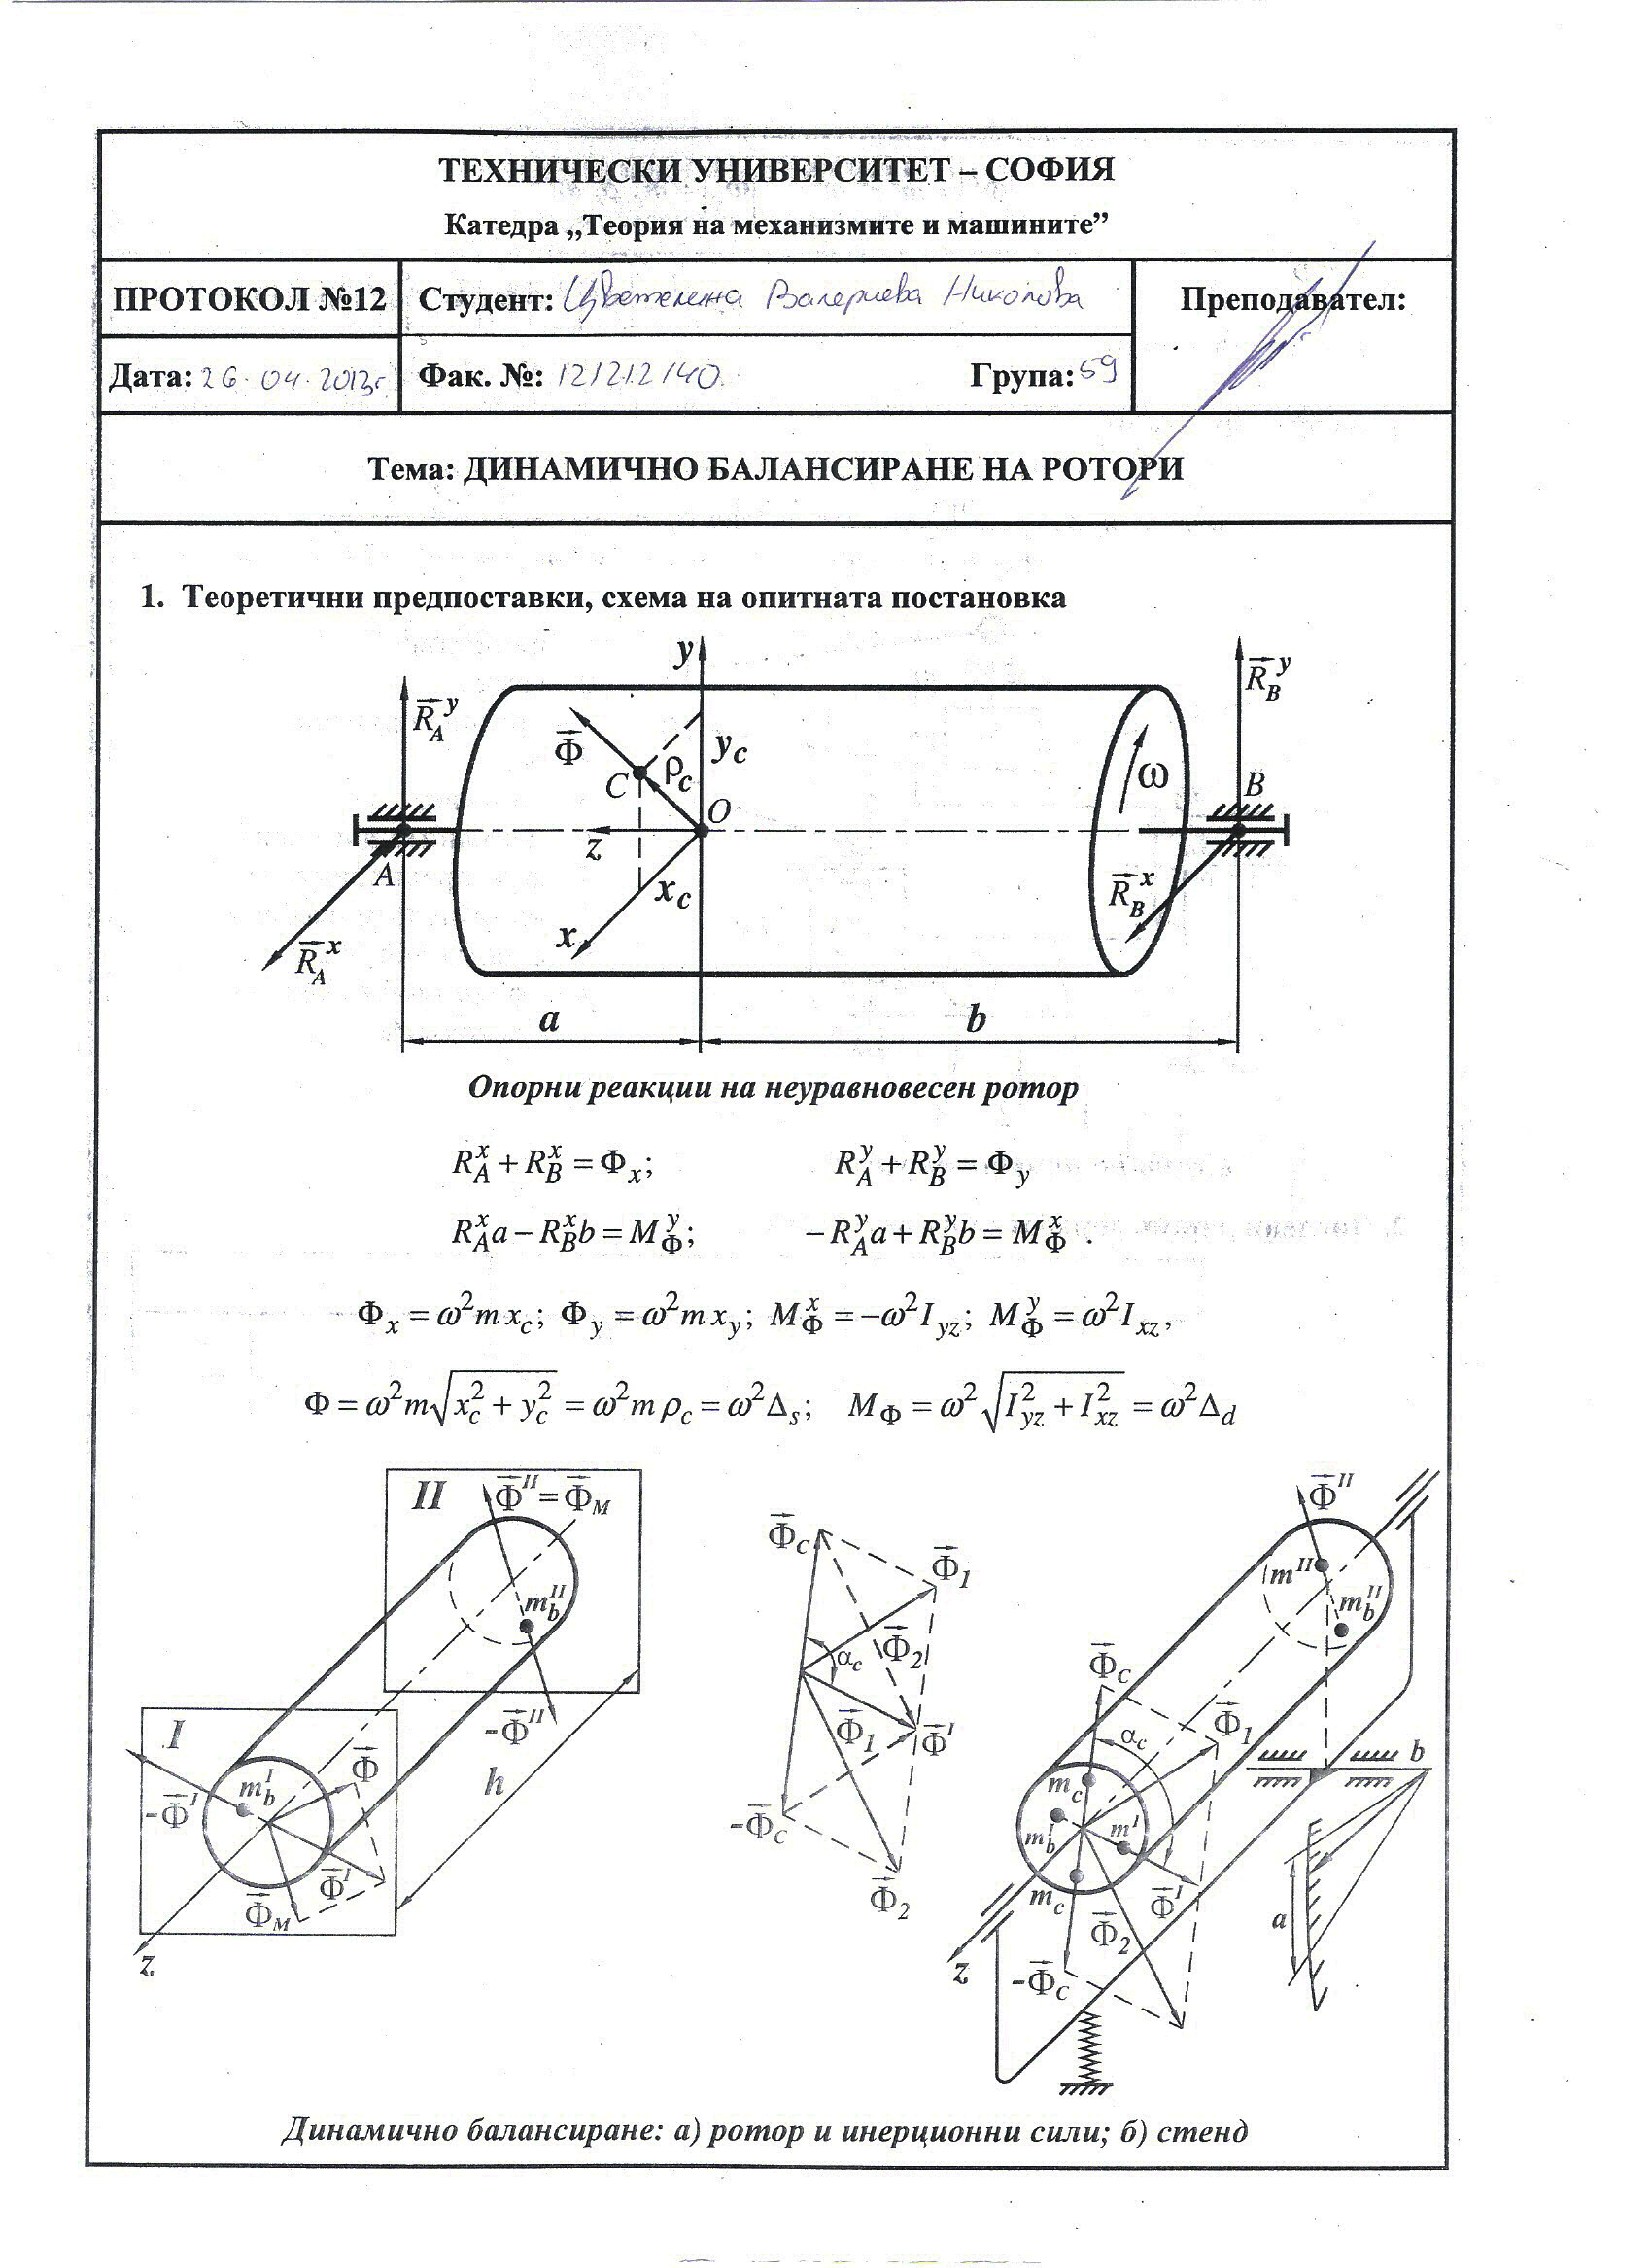 ТЕХНИЧЕСКИ УНИВЕРСИТЕТ – СОФИЯ
Катедра „Теория на механизмите и машините”
ПРОТОКОЛ №12
Студент: Цветелена Валериева Николова
Преподавател:
Дата: 26.04.2013г.
Фак. №: 121212140
Група: 59
Тема: ДИНАМИЧНО БАЛАНСИРАНЕ НА РОТОРИ
1. Теоретични предпоставки, схема на опитната постановка
y
R_A^y
R_B^y
Φ
y_c
C
ρ_c
ω
O
B
z
A
x_c
R_B^x
x
R_A^x
a
b
Опорни реакции на неуравновесен ротор
R_A^x + R_B^x = Φ_x; R_A^y + R_B^y = Φ_y
R_A^x a – R_B^x b = M_Φ^y; –R_A^y a + R_B^y b = M_Φ^x .
Φ_x = ω²m x_c; Φ_y = ω²m x_y; M_Φ^x = –ω²I_yz; M_Φ^y = ω²I_xz,
Φ = ω²m√(x_c² + y_c²) = ω²m ρ_c = ω²Δ_s; M_Φ = ω²√(I_yz² + I_xz²) = ω²Δ_d
II
Φ^II = Φ_M
m_b^II
-Φ^II
I
Φ
m_b^I
-Φ^I
h
Φ^I
Φ_M
z
Φ_c
Φ_1
Φ_2
α_c
Φ_1
Φ^I
-Φ_c
Φ_2
Φ^II
m^II
m_b^II
Φ_c
α_c
Φ_1
b
m_c
m_b^I
m^I
m_c
Φ^I
Φ_2
a
z
-Φ_c
Динамично балансиране: а) ротор и инерционни сили; б) стенд